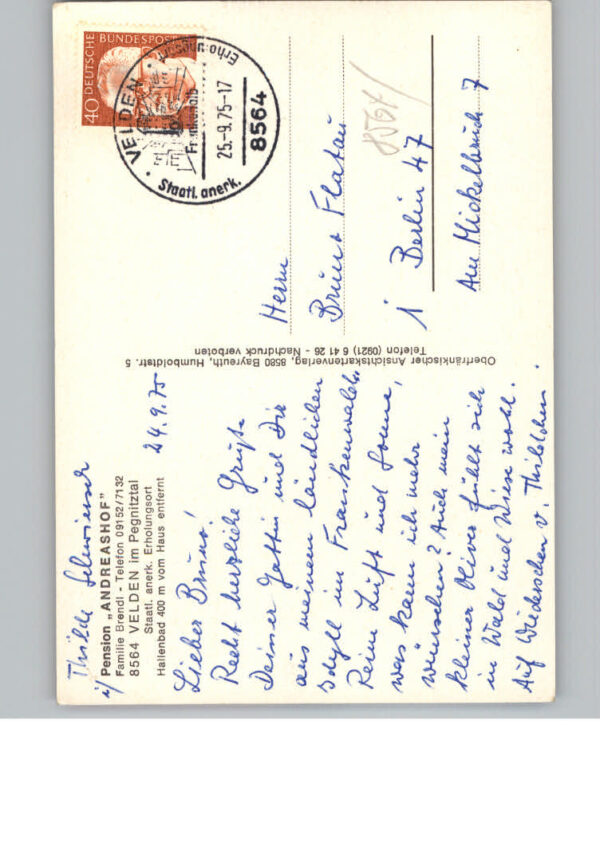 Thilde Schwiersch
i/ Pension „ANDREASHOF"
Familie Brendl - Telefon 09152/7132
8564 VELDEN im Pegnitztal
Staatl. anerk. Erholungsort
Hallenbad 400 m vom Haus entfernt
24.9.75
Lieber Bruno!
Recht herzliche Grüße
Deiner Gattin und Dir
aus meinem ländlichen
Idyll im Frankenwald.
Reine Luft und Sonne,
was kann ich mehr
wünschen? Auch mein
kleiner Oliver fühlt sich
in Wald und Wiese wohl.
Auf Wiedersehen v. Thildchen
Oberfränkischer Ansichtskartenverlag, 8580 Bayreuth, Humboldtstr. 5
Telefon (0921) 6 41 26 - Nachdruck verboten
40 DEUTSCHE BUNDESPOST
VELDEN
Frankenalb
25.-9.75-17
8564
Staatl. anerk.
Erholungsort
8564
Herrn
Bruno Flatau
1 Berlin 47
Am Mickelbruch 7